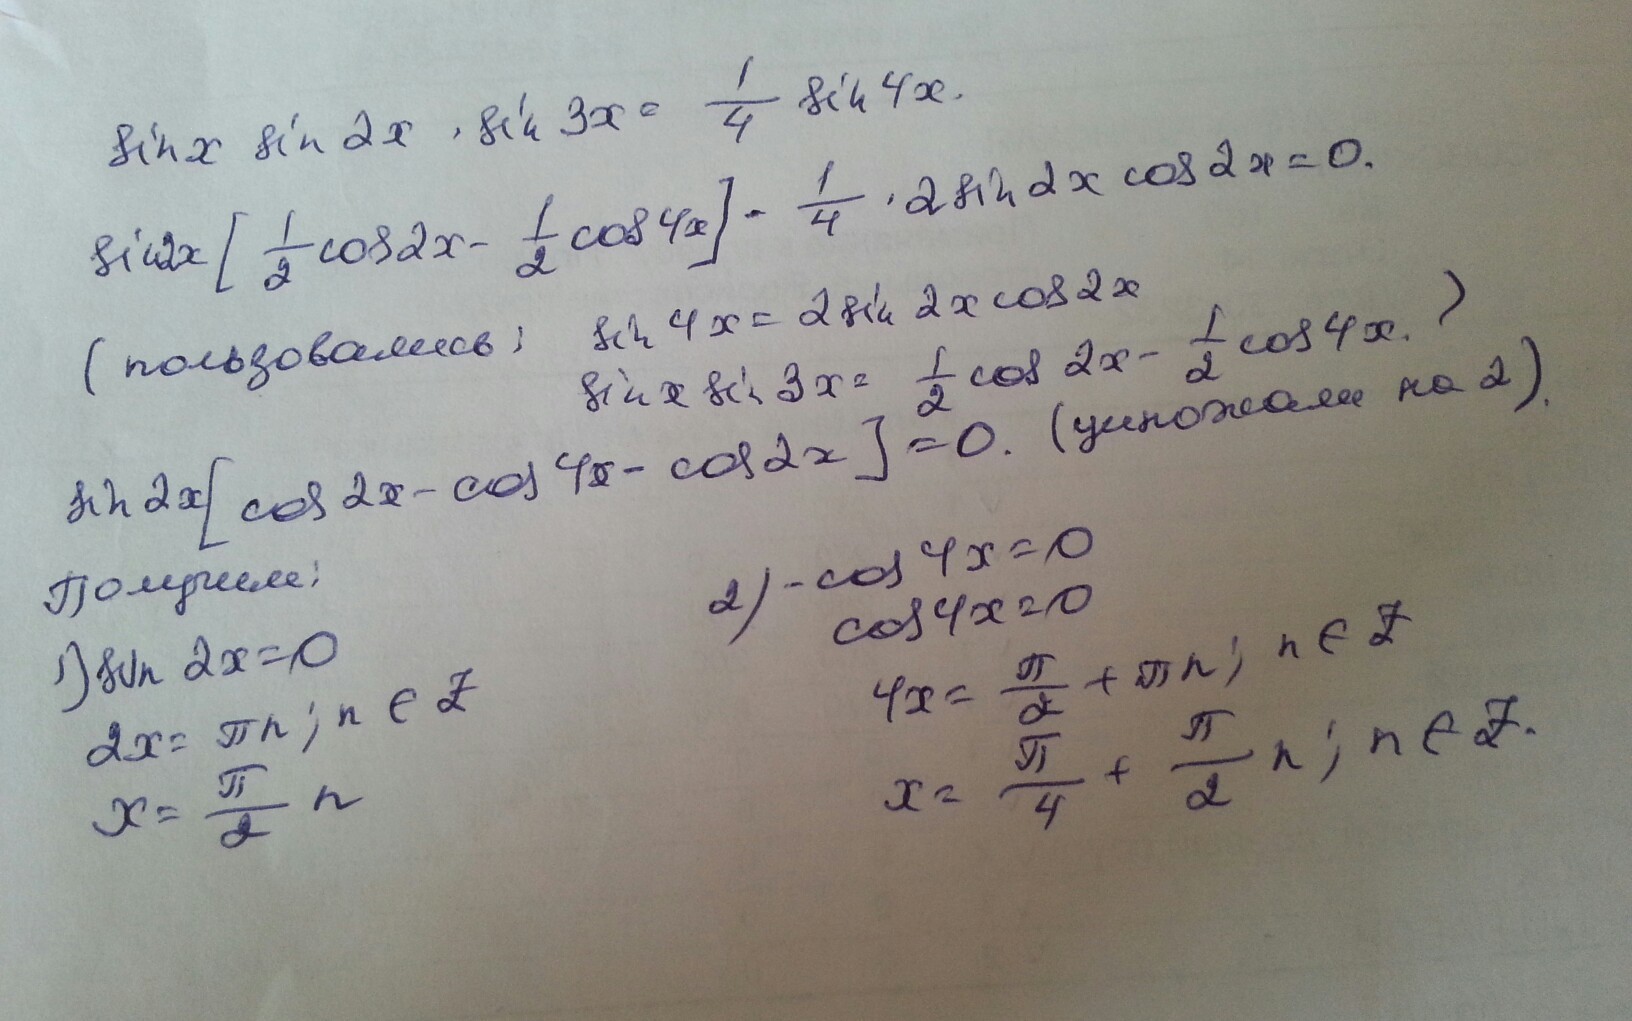 sin x sin 2x · sin 3x = 1/4 sin 4x.
sin 2x [1/2 cos 2x - 1/2 cos 4x] - 1/4 · 2 sin 2x cos 2x = 0.
(пользовались: sin 4x = 2 sin 2x cos 2x
sin x sin 3x = 1/2 cos 2x - 1/2 cos 4x.)
sin 2x [cos 2x - cos 4x - cos 2x] = 0. (умножали на 2).
Получим:
1) sin 2x = 0
2x = πn; n ∈ Z
x = π/2 n
2) - cos 4x = 0
cos 4x = 0
4x = π/2 + πn; n ∈ Z
x = π/4 + π/2 n; n ∈ Z.